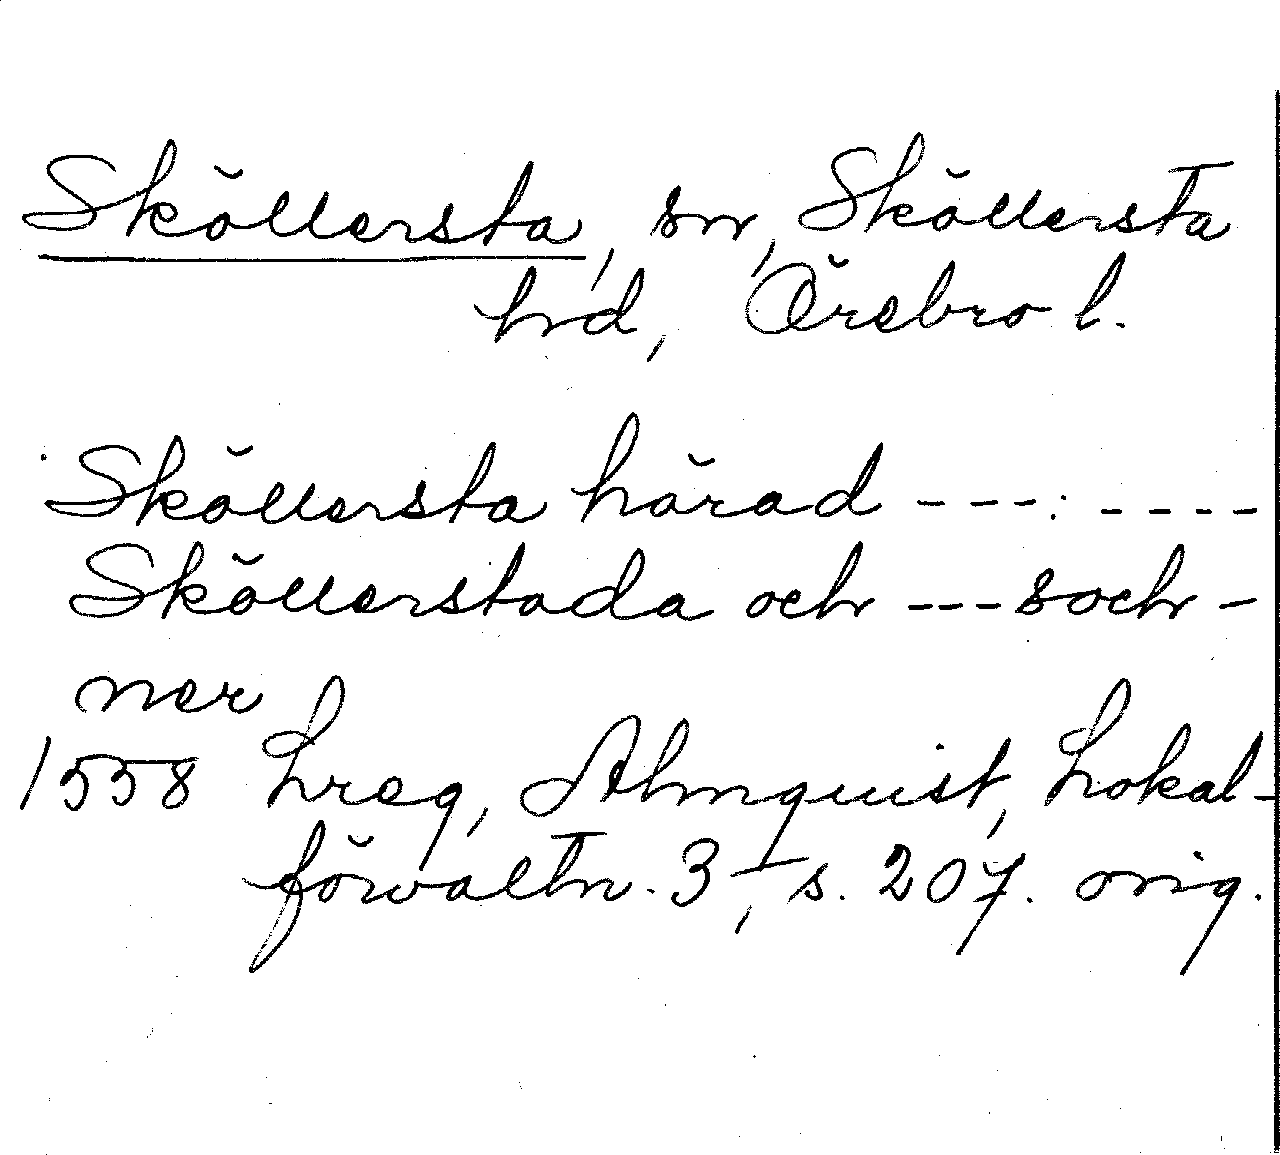 Sköllersta, sn, Sköllersta
hrd, Örebro l.
Sköllersta härad - - - -: - - - -
Sköllerstada och - - - soch-
ner
1558 Lreg, Almquist, Lokal-
förvaltn. 3, s. 207. orig.